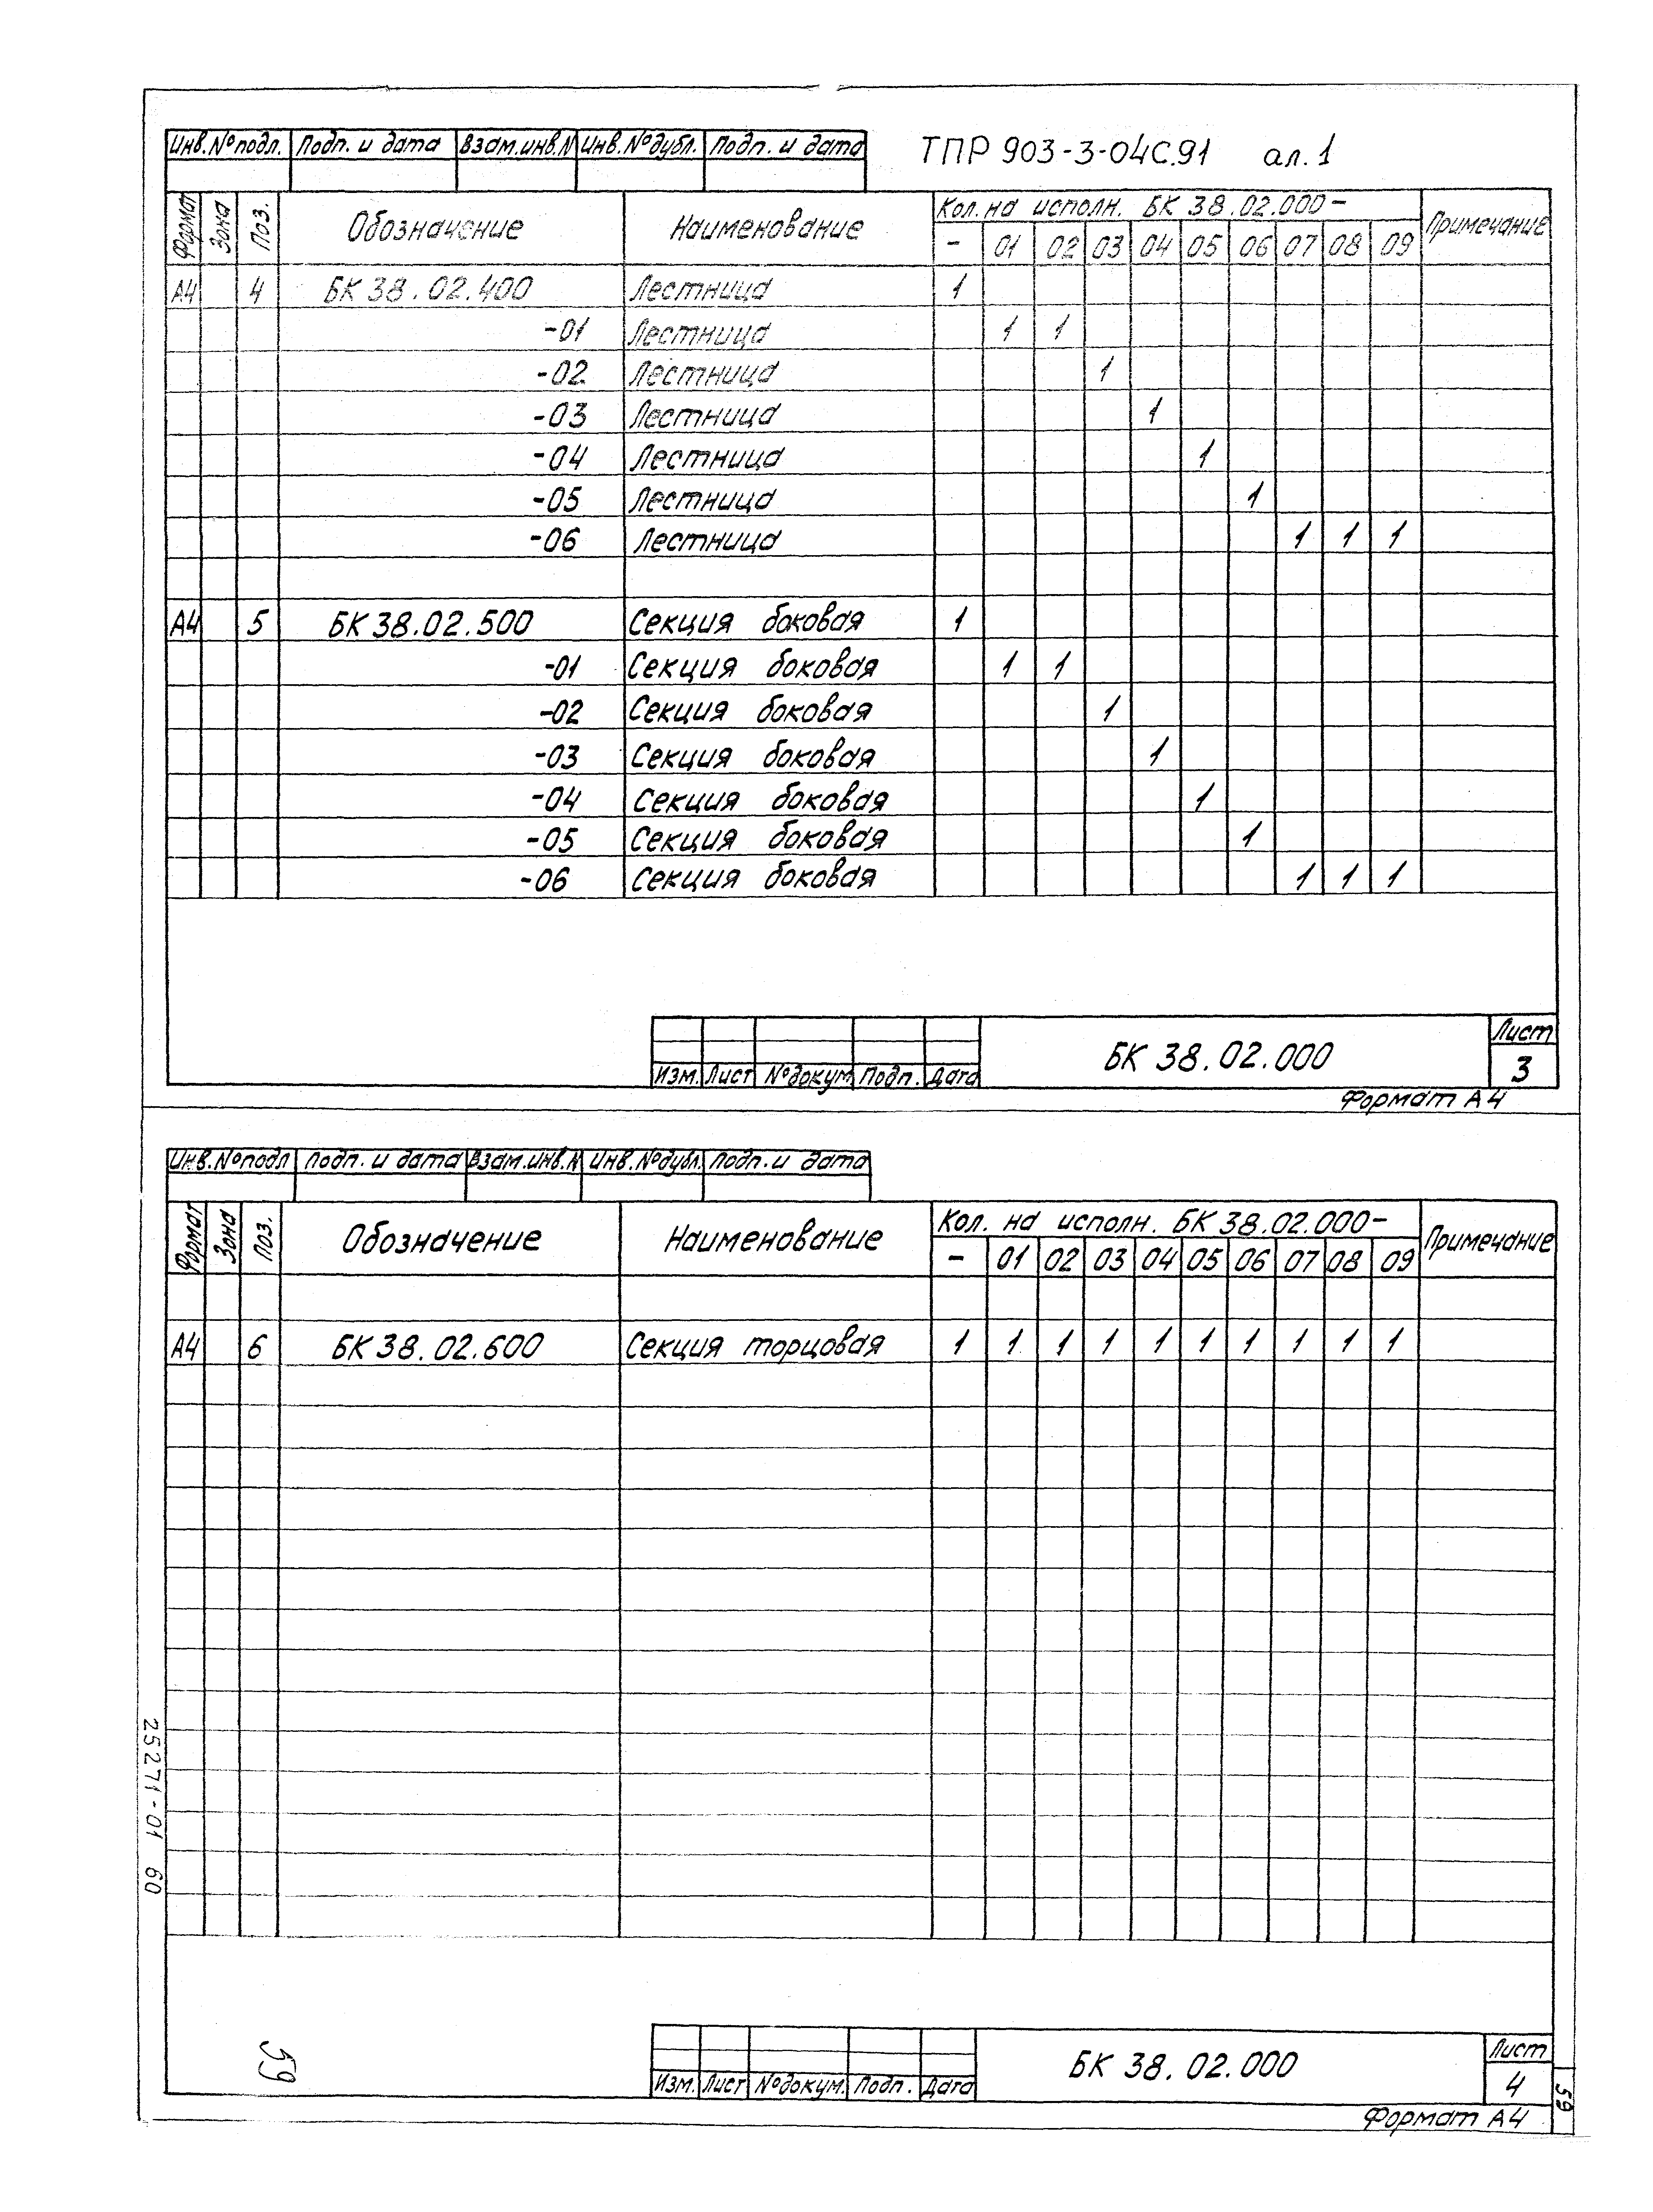 ТПР 903-3-04С.91 ал.1
Инв.№подл. Подп. и дата Взам.инв.N Инв.№дубл. Подп. и дата
Формат Зона Поз. Обозначение Наименование Кол. на исполн. БК 38.02.000- Примечание
- 01 02 03 04 05 06 07 08 09
А4 4 БК 38.02.400 Лестница 1
-01 Лестница 1 1
-02 Лестница 1
-03 Лестница 1
-04 Лестница 1
-05 Лестница 1
-06 Лестница 1 1 1
А4 5 БК 38.02.500 Секция боковая 1
-01 Секция боковая 1 1
-02 Секция боковая 1
-03 Секция боковая 1
-04 Секция боковая 1
-05 Секция боковая 1
-06 Секция боковая 1 1 1
БК 38.02.000
Лист
3
Изм. Лист №докум Подп. Дата
Формат А4
Инв.№подл Подп. и дата Взам.инв.N Инв.№дубл. Подп. и дата
Формат Зона Поз. Обозначение Наименование Кол. на исполн. БК 38.02.000- Примечание
- 01 02 03 04 05 06 07 08 09
А4 6 БК 38.02.600 Секция торцовая 1 1 1 1 1 1 1 1 1 1
25271-01 60
59
БК 38.02.000
Лист
4
Изм. Лист №докум. Подп. Дата
59
Формат А4